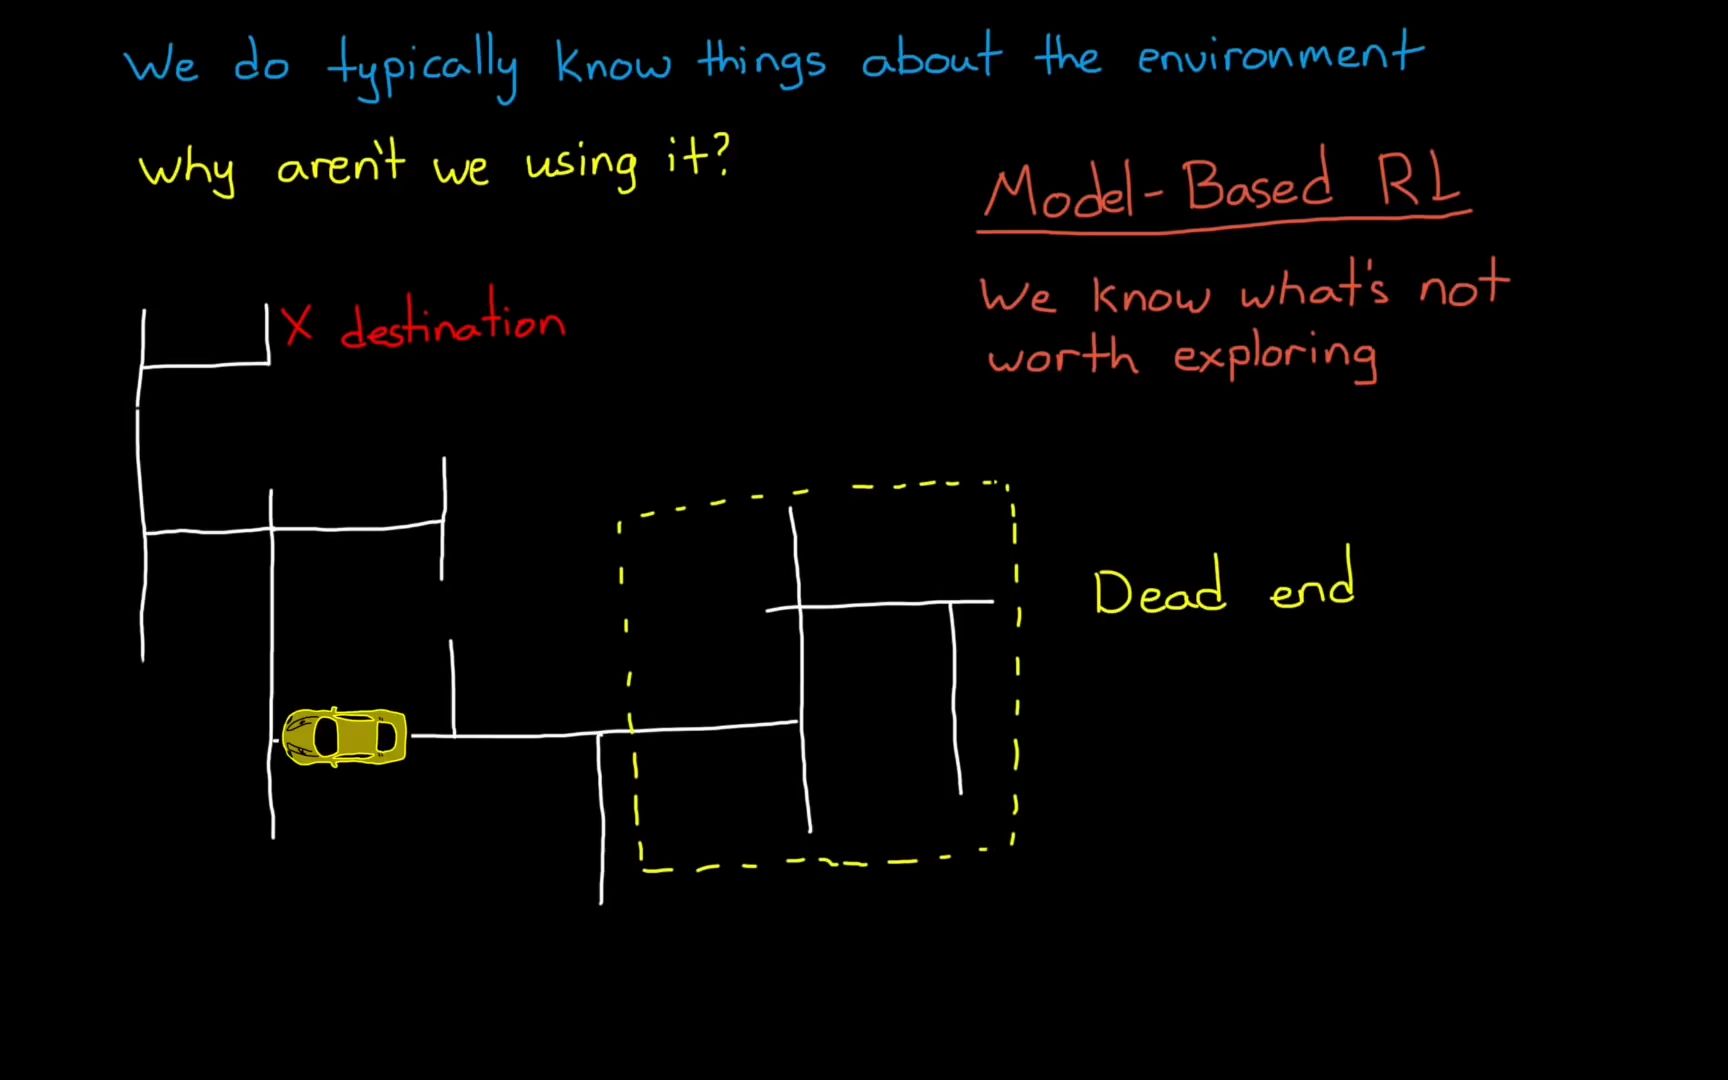 We do typically know things about the environment
Why aren't we using it?
Model-Based RL
We know what's not
worth exploring
X destination
Dead end